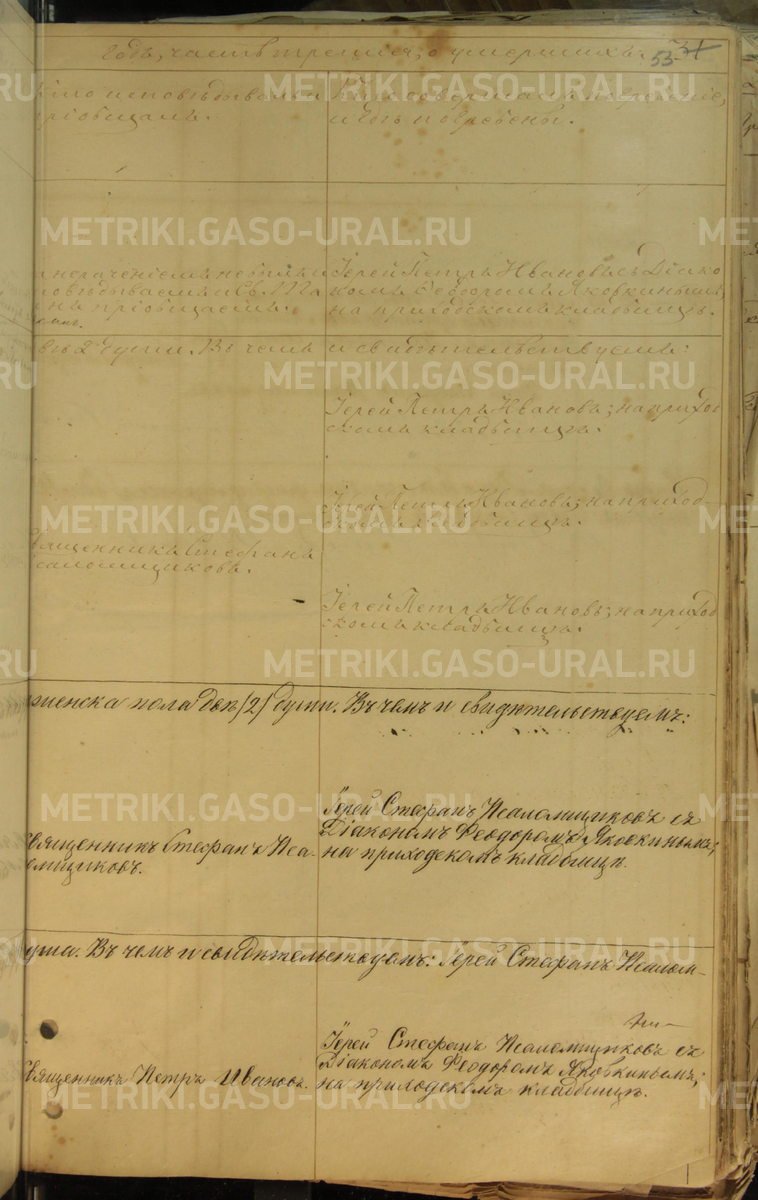 годъ, часть третія, о умершихъ.
53 31
Кто исповѣдывалъ и
пріобщалъ.
Кто совершалъ погребеніе,
и гдѣ погребены.
METRIKI.GASO-URAL.RU
Іерей Петръ Ивановъ съ Діако
номъ Ѳеодоромъ Яковкинымъ,
на приходскомъ кладбищѣ.
2 души. Въ чемъ и свидѣтельствуемъ:
Іерей Петръ Ивановъ; на приход
скомъ кладбищѣ.
Іерей Петръ Ивановъ; на приход-
скомъ кладбищѣ.
Священникъ Стефанъ
Псаломщиковъ.
Іерей Петръ Ивановъ; на приход
скомъ кладбищѣ.
женска пола двѣ /2/ души. Въ чемъ и свидѣтельствуемъ:
Священникъ Стефанъ Псал-
омщиковъ.
Іерей Стефанъ Псаломщиковъ съ
Діакономъ Ѳеодоромъ Яковкинымъ;
на приходскомъ кладбищѣ.
душа. Въ чемъ и свидѣтельствуемъ: Іерей Стефанъ Псалом-
Священникъ Петръ Ивановъ.
Іерей Стефанъ Псаломщиковъ съ
Діакономъ Ѳеодоромъ Яковкинымъ;
на приходскомъ кладбищѣ.